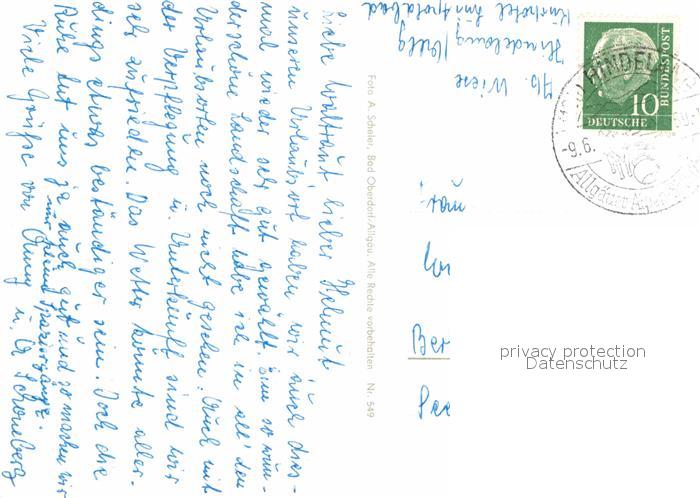 Liebe Waltraut lieber Helmut
unseren Urlaubsort haben wir auch dies-
mal wieder sehr gut gewählt. Eine so wun-
derschöne Landschaft habe ich in all' den
Urlaubsorten noch nicht gesehen. Auch mit
der Verpflegung u. Unterkunft sind wir
sehr zufrieden. Das Wetter könnte aller-
dings etwas beständiger sein. Doch die
Ruhe tut uns ja auch gut und so machen wir
nur kleine Spaziergänge.
Viele Grüße von u. Schöneberg
Foto A. Scheler, Bad Oberdorf/Allgäu. Alle Rechte vorbehalten Nr. 549
Wiese
Hindelang/Allg
Kurhotel Luitpoldbad
10
DEUTSCHE
BUNDESPOST
-9.6.
Ber
privacy protection
Datenschutz